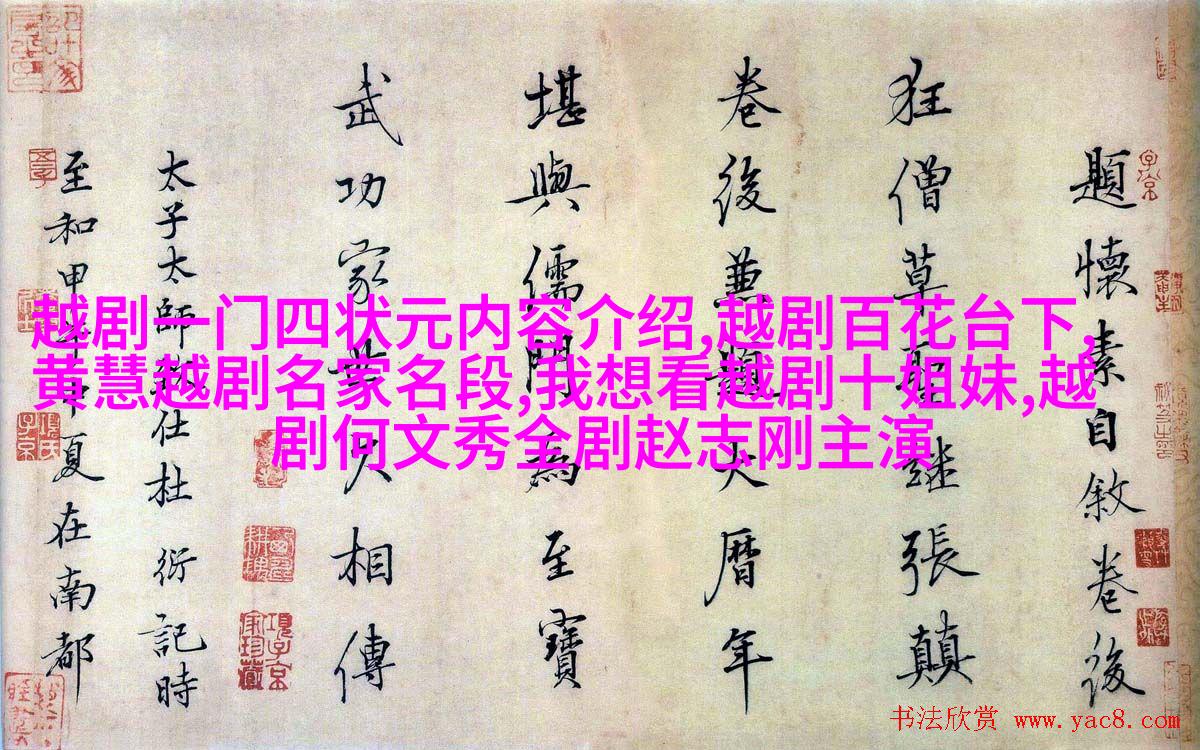 越剧一门四状元内容介绍,越剧百花台下,
黄慧越剧名家名段,我想看越剧十姐妹,越
剧何文秀全剧赵志刚主演
題懷素自敘卷後
狂僧草聖繼張顛
卷後兼題大曆年
堪與儒門為至寶
武功家世久相傳
太子太師致仕杜 衍記時
至和甲午中夏在南都
书法欣赏 www.yac8.com